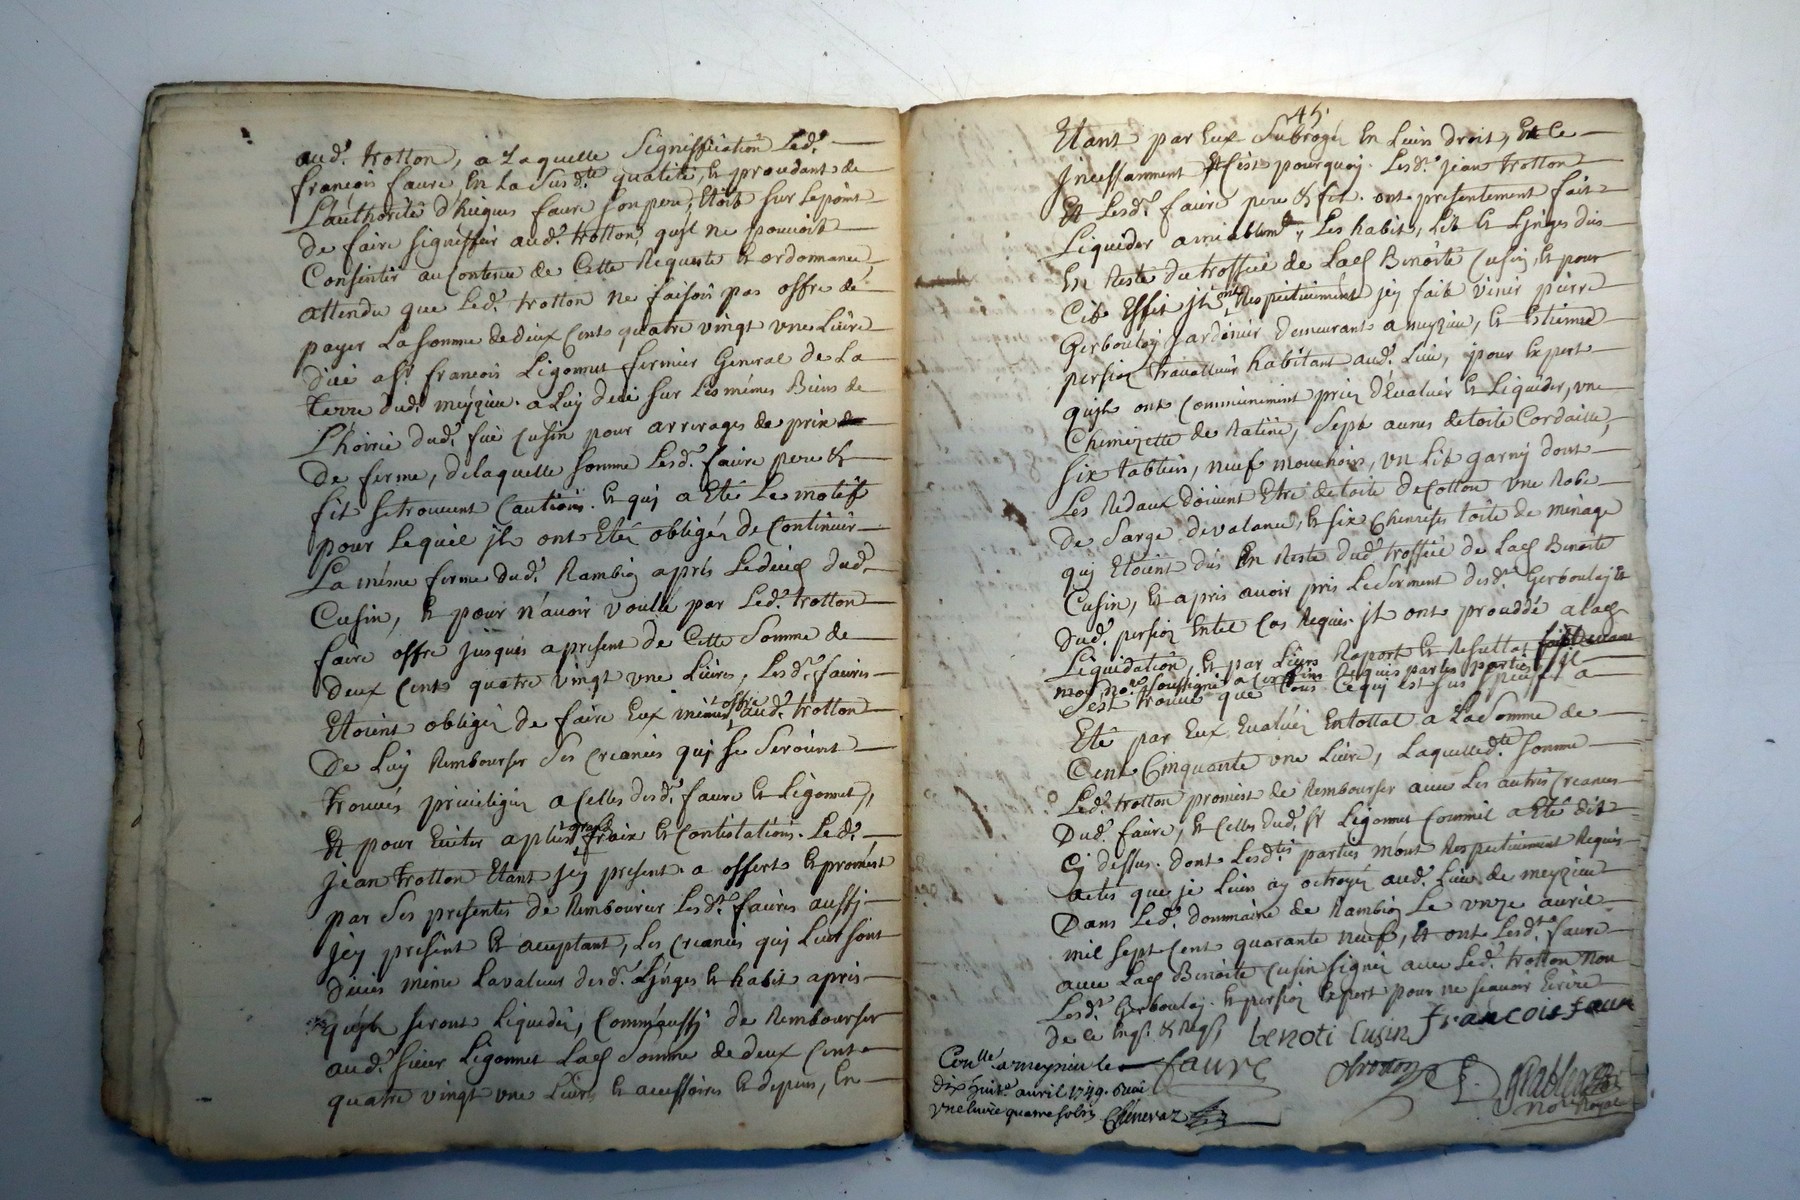 aud.t trotton, a Laquelle Signiffication Led.t
françois faure, En La Susd.te qualité, Et procudant de
L'authorité d'hugues faure son pere, Etoit sur Le point
de faire signiffier aud.t trotton, qu'jl ne pouvoit
Consentir au Contenu de Cette Requette Et ordonnance,
attendu que Led.t trotton ne faisoit pas offre de
payer La somme de deux Cent quatre vingt une Livre
düe a s.r françois Ligonnet fermier General de La
terre dud.t meyzieu. a Luy deüe sur Les mémes Biens de
L'hoirie dud.t fut Cusin pour arrerages de prix
De ferme, de laquelle somme Lesd.ts faure pere &
fils se trouvent Cautions. Et quj a Eté Le motif
pour Lequel jls ont Etés obligés de Continuer
La méme ferme dud.t Rambion aprés Le deced dud.t
Cusin, Et pour n'avoir voullu par Led.t trotton
faire offre jusques a present de Cette Somme de
deux Cent quatre vingt une Livres, Lesd.ts faures
Etoient obligés de faire Eux mémes offre aud.t trotton
De Luy Rembourser Ses Creances quj se Seroient
trouvés privilegiez a Celles desd.ts faure Et Ligonnet,
Et pour Eviter a plus grands fraix Et Contestations. Led.t
jean trotton Etant jcy present. a offert Et promest
par Ses presentes de Rembourcer Lesd.ts faures aussj
jcy present Et aceptant, Les Creances quj Leur sont
Dües méme La valeur desd.ts Linges Et habit aprés
qu'jls seront Liquidés, Comme aussj de Rembourser
aud.t sieur Ligonnet Lad.e Somme de deux Cent
quatre vingt une Livre Et accessoires Et depens, En
45.
Etant par Eux Subrogés En Leurs droit, Et Ce
Jncessamment Et C'est pourquoy. Lesd.ts jean trotton
Et Lesd.ts faure pere & fils. ont presentement fait
Liquider amiablem.t, Les habits, Lit Et Linges dus
En Reste du trossue de Lad.e Benoite Cusin, Et pour
Cet Effet jls ont Respectivement jcy fait venir pierre
Gerboulet jardinier demeurant a meyzieu, Et Etienne
persion travailleur habitant aud.t Lieu, pour Expert
qu'jls ont Communement priez d'Evaluer Et Liquider, une
Chemizette de Ratine, Sept aunes de toile Cordaille,
six tabliers, neuf mouchoirs, un Lit garny dont
Les Redaux doivent Etre de toile de Cotton une Robe
de Sarge de valance, Et six Chemises toile de ménage
quj Etoient düs En Reste dud.t trossue de Lad.e Benoite
Cusin, Et aprés avoir pris Le Serment desd.ts Gerboulet Et
Dud.t persion En tel Cas Requis. jls ont procuddé a Lad.e
Liquidation, Et par Leurs Raport Et Resultat
moy no.re soussigné a Ces fins Requis par les parties, jl
s'est trouvé que tous Ce quj est sus speciffié a
Eté par Eux Evalués En tottal a La Somme de
Cent Cinquante une Livre, Laquelled.te somme
Led.t trotton promest de Rembourser avec Les autres Creances
Dud.t faure, Et Celles dud.t s.r Ligonnet Comme jl a Eté dit
Cy dessus. dont Lesd.tes parties m'ont Respectivement Requis
actes que je Leurs ay octroyés aud.t Lieu de meyzieu
Dans Led.t dommaine de Rambion Le unze avril
mil sept Cent quarante neuf, Et ont Lesd.ts faure
avec Lad.e Benoite Cusin signés avec Led.t trotton non
Lesd.ts Gerboulet. Et persion Expert pour ne sçavoir Ecrire
de ce Enq.s & Req.s benoti cusin françois faure
faure
Con.lle a meyzieu le
dix huit.e avril 1749. Reçu
une livre quatre sols
Chénevaz
no.re Royal